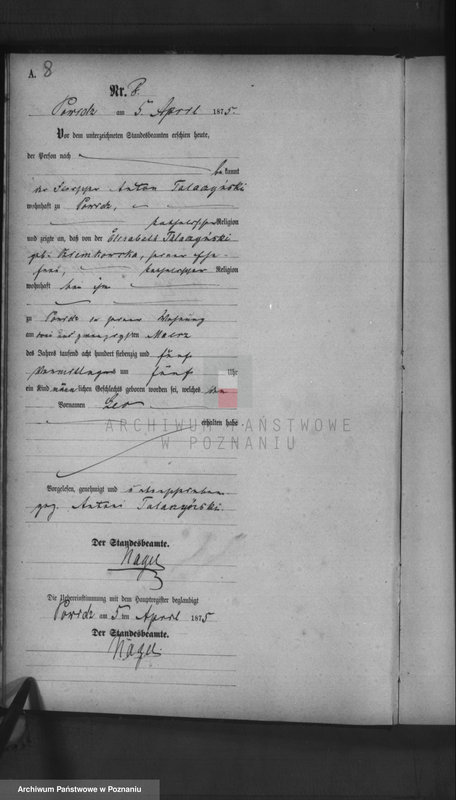 A. 8
Nr. 8.
Powidz am 5 April 1875.
Vor dem unterzeichneten Standesbeamten erschien heute,
der Person nach
bekannt
der Anton Talaczyński
wohnhaft zu Powidz,
katholischer Religion
und zeigte an, daß von der Elisabeth Talaczyński
geb. seiner Ehe-
frau, katholischer Religion
wohnhaft bei ihm
zu Powidz in seiner Wohnung
am ten Maerz
des Jahres tausend acht hundert siebenzig und fünf
Vormittags um fünf Uhr
ein Kind männlichen Geschlechts geboren worden sei, welches den
Vornamen Leo
erhalten habe
Vorgelesen, genehmigt und unterschrieben
gez. Antoni Talaczyński.
Der Standesbeamte.
Nagel
Die Uebereinstimmung mit dem Hauptregister beglaubigt
Powidz am 5 ten April 1875
Der Standesbeamte.
Nagel.
ARCHIWUM PAŃSTWOWE
W POZNANIU
Archiwum Państwowe w Poznaniu